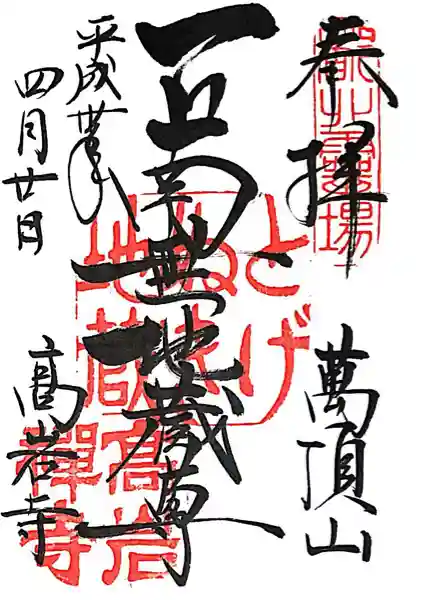 奉拝
萬頂山
南無地蔵尊
平成丗年
四月廿日
高岩寺
とげ
ぬき
地蔵
高岩
禅寺
霊場